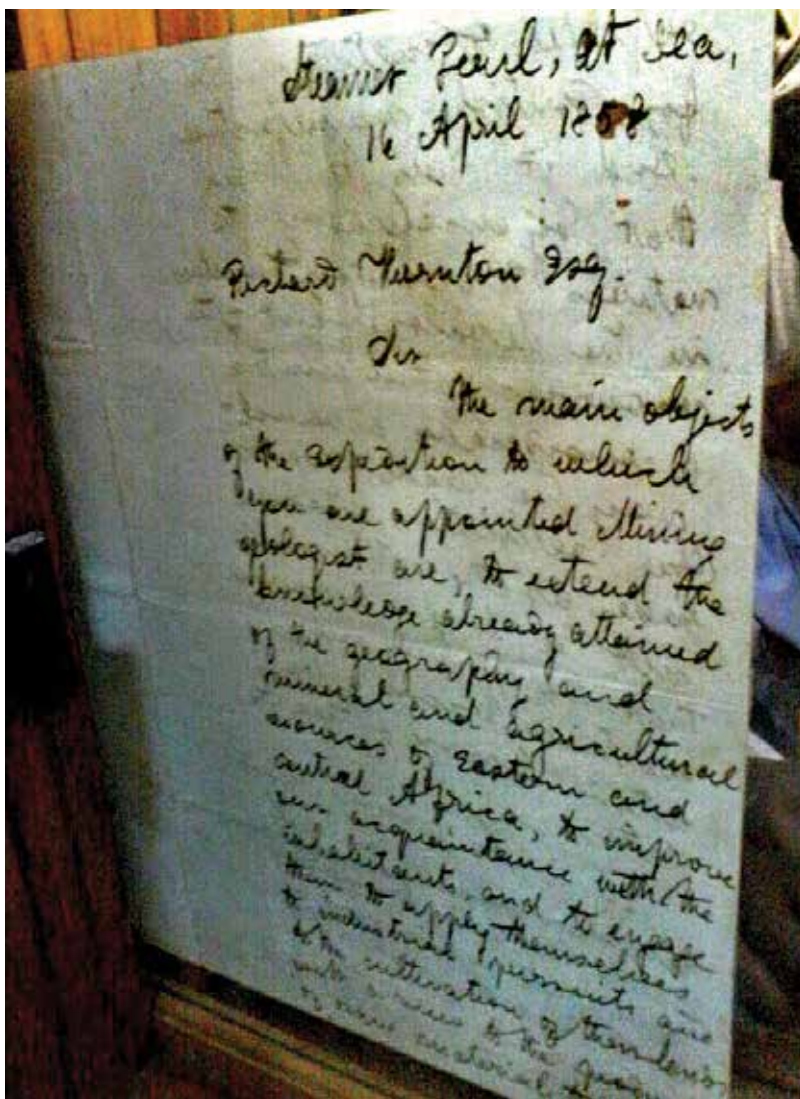 Steamer Pearl, at Sea,
16 April 1858
Richard Thornton Esq.
Sir
The main objects
of the expedition to which
you are appointed Mining
geologist are, to extend the
knowledge already attained
of the geography and
mineral and Agricultural
resources of Eastern and
Central Africa, to improve
our acquaintance with the
inhabitants, and to engage
them to apply themselves
to industrial pursuits and
to the cultivation of their lands
with a view to the
of raw material